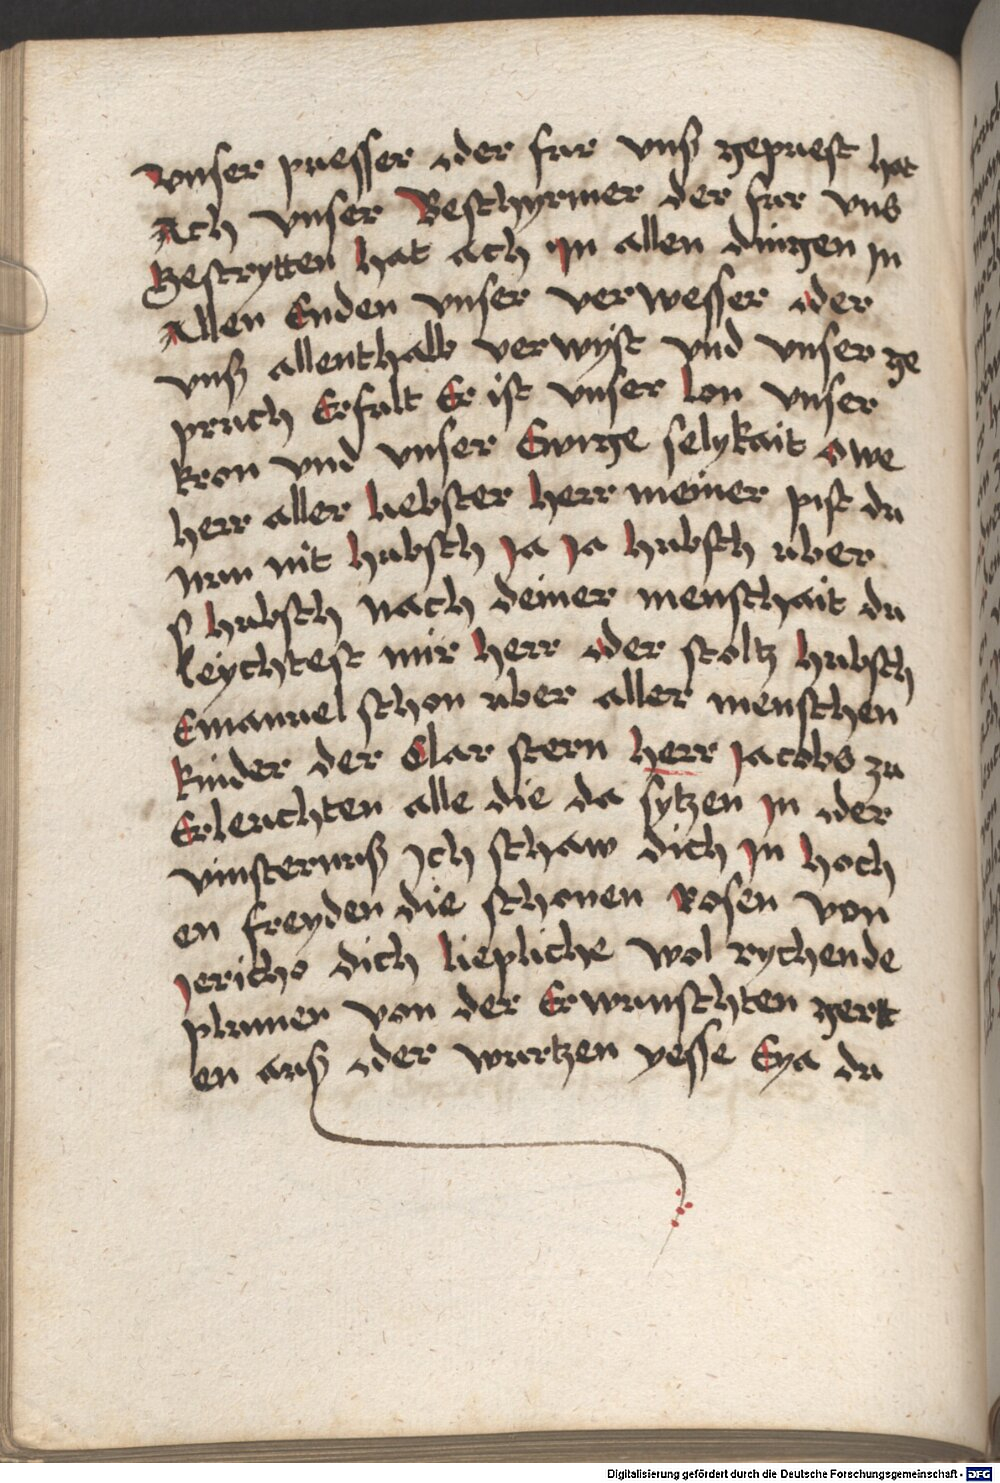 vnser puesser der fur vnß gepuest hat
Ach vnser Beschyrmer der fur vns
gestrytten hat ach in allen dingen in
Allen Enden vnser verwesser der
vnß allenthalb verwyst vnd vnser ge
pruch Erfult Er ist vnser lon vnser
kron vnd vnser Ewige selykait owe
herr aller liebster herr meiner pist du
nun nit hubsch Ja Ja hubsch uber
s hubsch nach deiner menschait du
leychtest mir herr der stoltz hubsch
Emanuel schon uber aller menschen
kinder der Clar stern herr Jacobs zu
Erleuchten alle die da sytzen in der
vinsternuß Ich schaw dich in hoch
en freyden die schonen Rosen von
Jericho dich liepliche wol rychende
plumen von der Erwunschten gert
en auß der wurtzen yesse Eya du
Digitalisierung gefördert durch die Deutsche Forschungsgemeinschaft - DFG